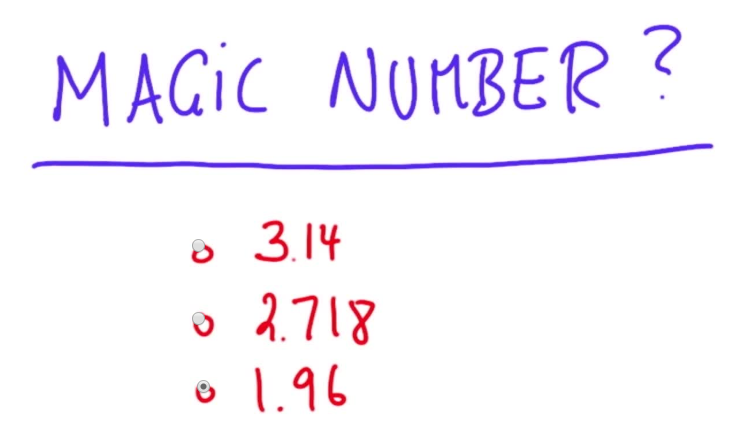 MAGiC NUMBER?
3.14
2.718
1.96